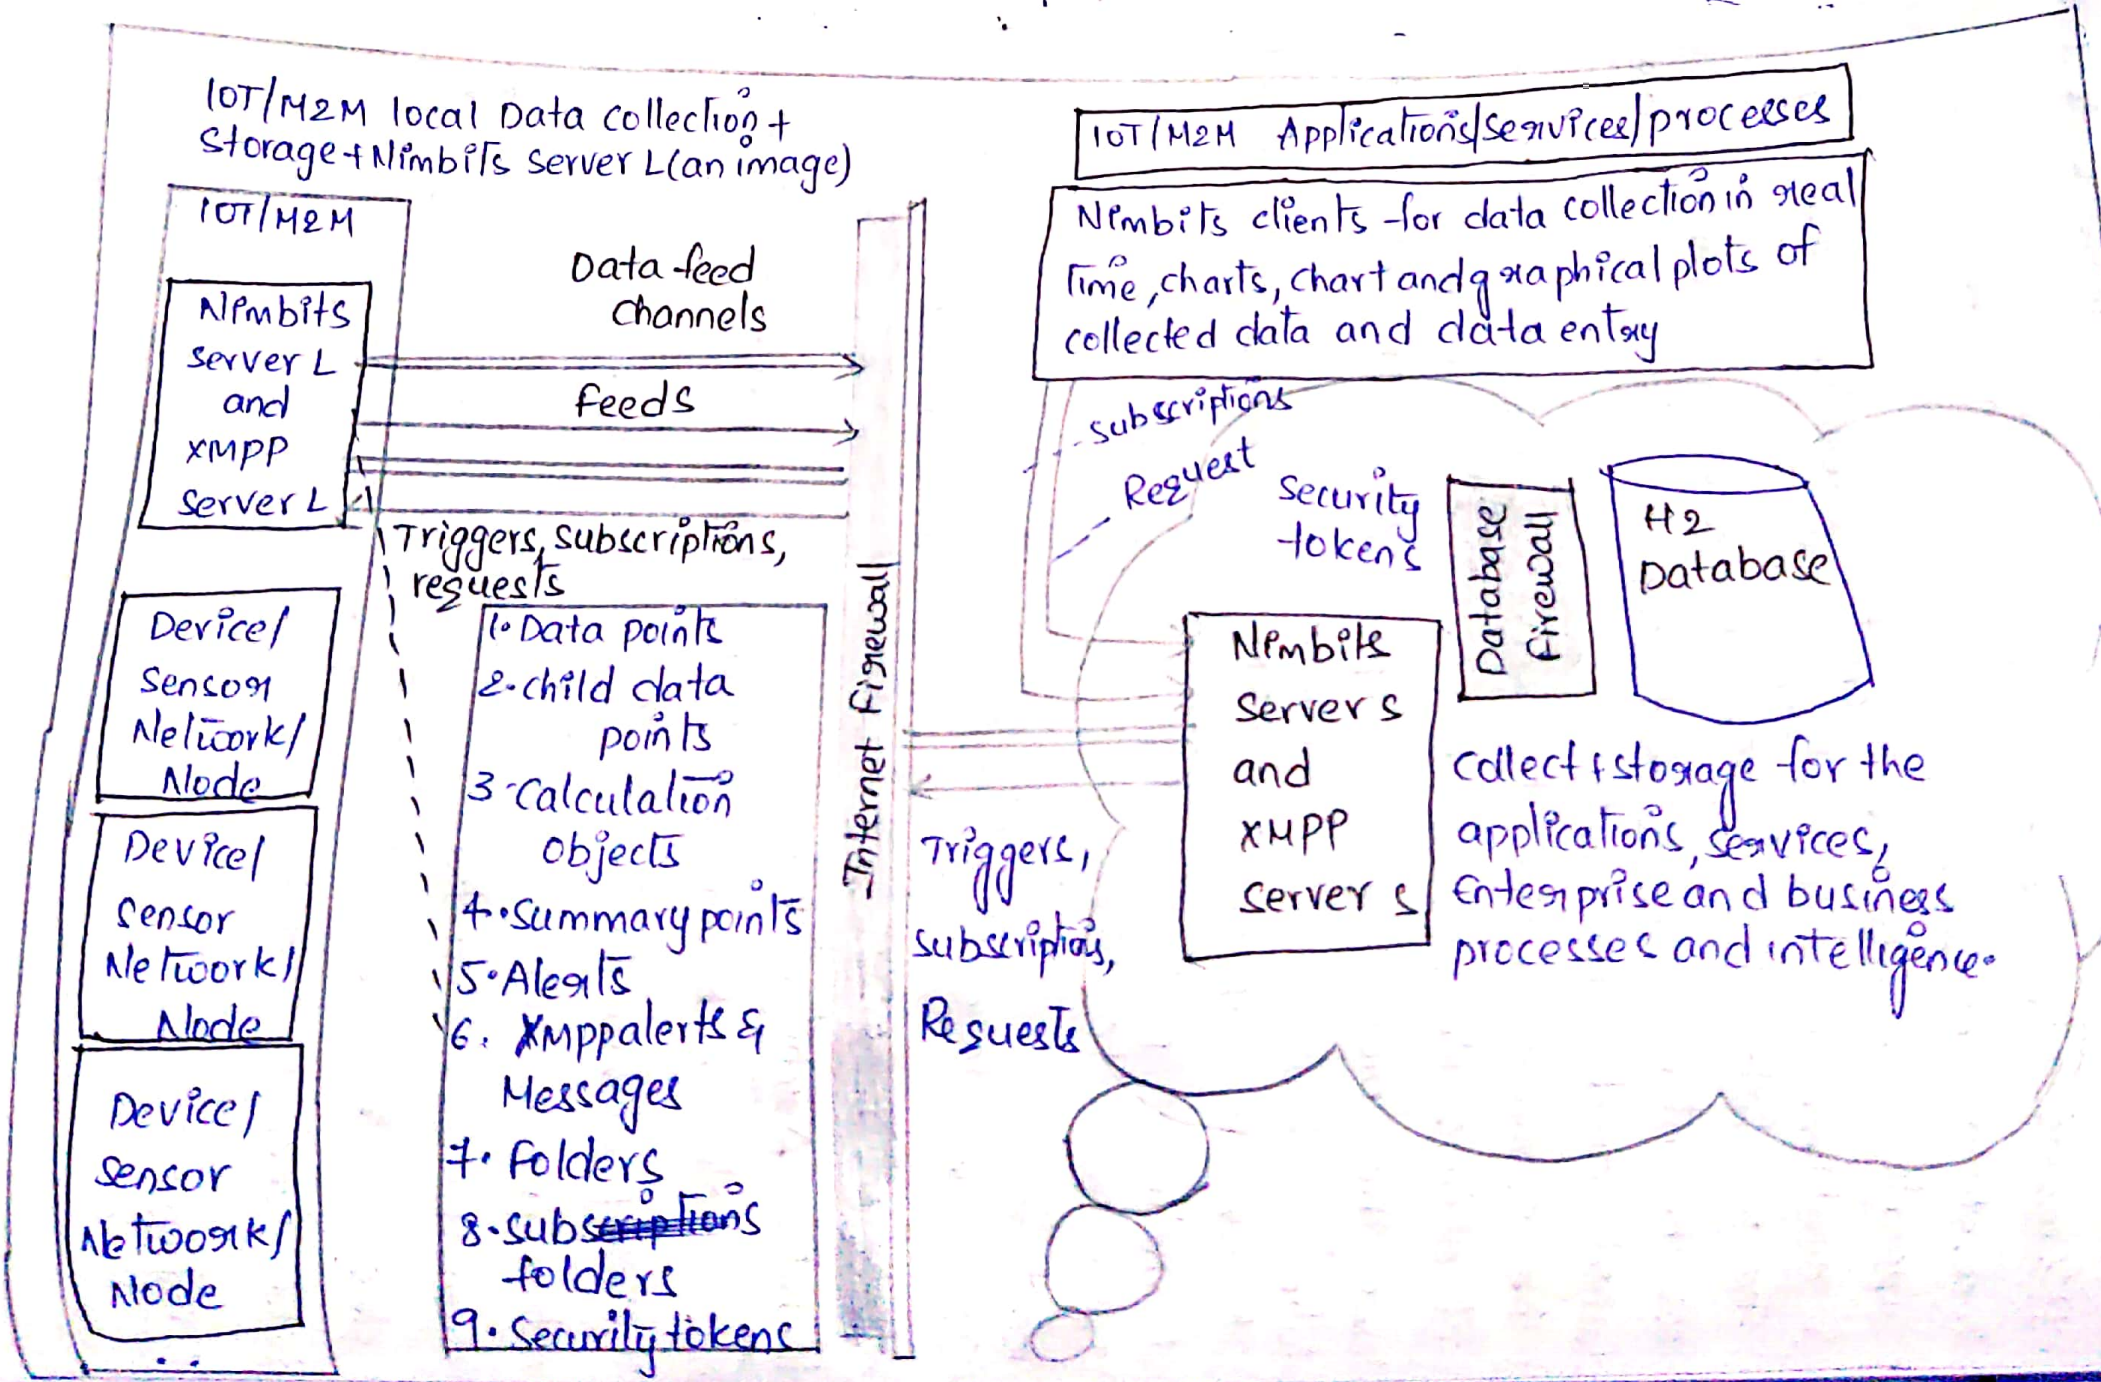 IOT/M2M local Data collection +
Storage + Nimbits Server L (an image)
IOT/M2M
Nimbits
Server L
and
XMPP
Server L
Device/
Sensor
Network/
Node
Device/
Sensor
Network/
Node
Device/
Sensor
Network/
Node
Data feed
channels
feeds
Triggers, subscriptions,
requests
1. Data points
2. child data
points
3 - Calculation
objects
4. Summary points
5. Alerts
6. XMPP alerts &
Messages
7. Folders
8. subscriptions
folders
9. Security tokens
Internet Firewall
IOT/M2M Applications/services/processes
Nimbits clients for data collection in real
Time, charts, chart and graphical plots of
collected data and data entry
subscriptions
Request
Security
tokens
Database
firewall
H2
Database
Nimbits
Server S
and
XMPP
Server S
Triggers,
subscriptions,
Requests
collect + storage for the
applications, services,
Enterprise and business
processes and intelligence.